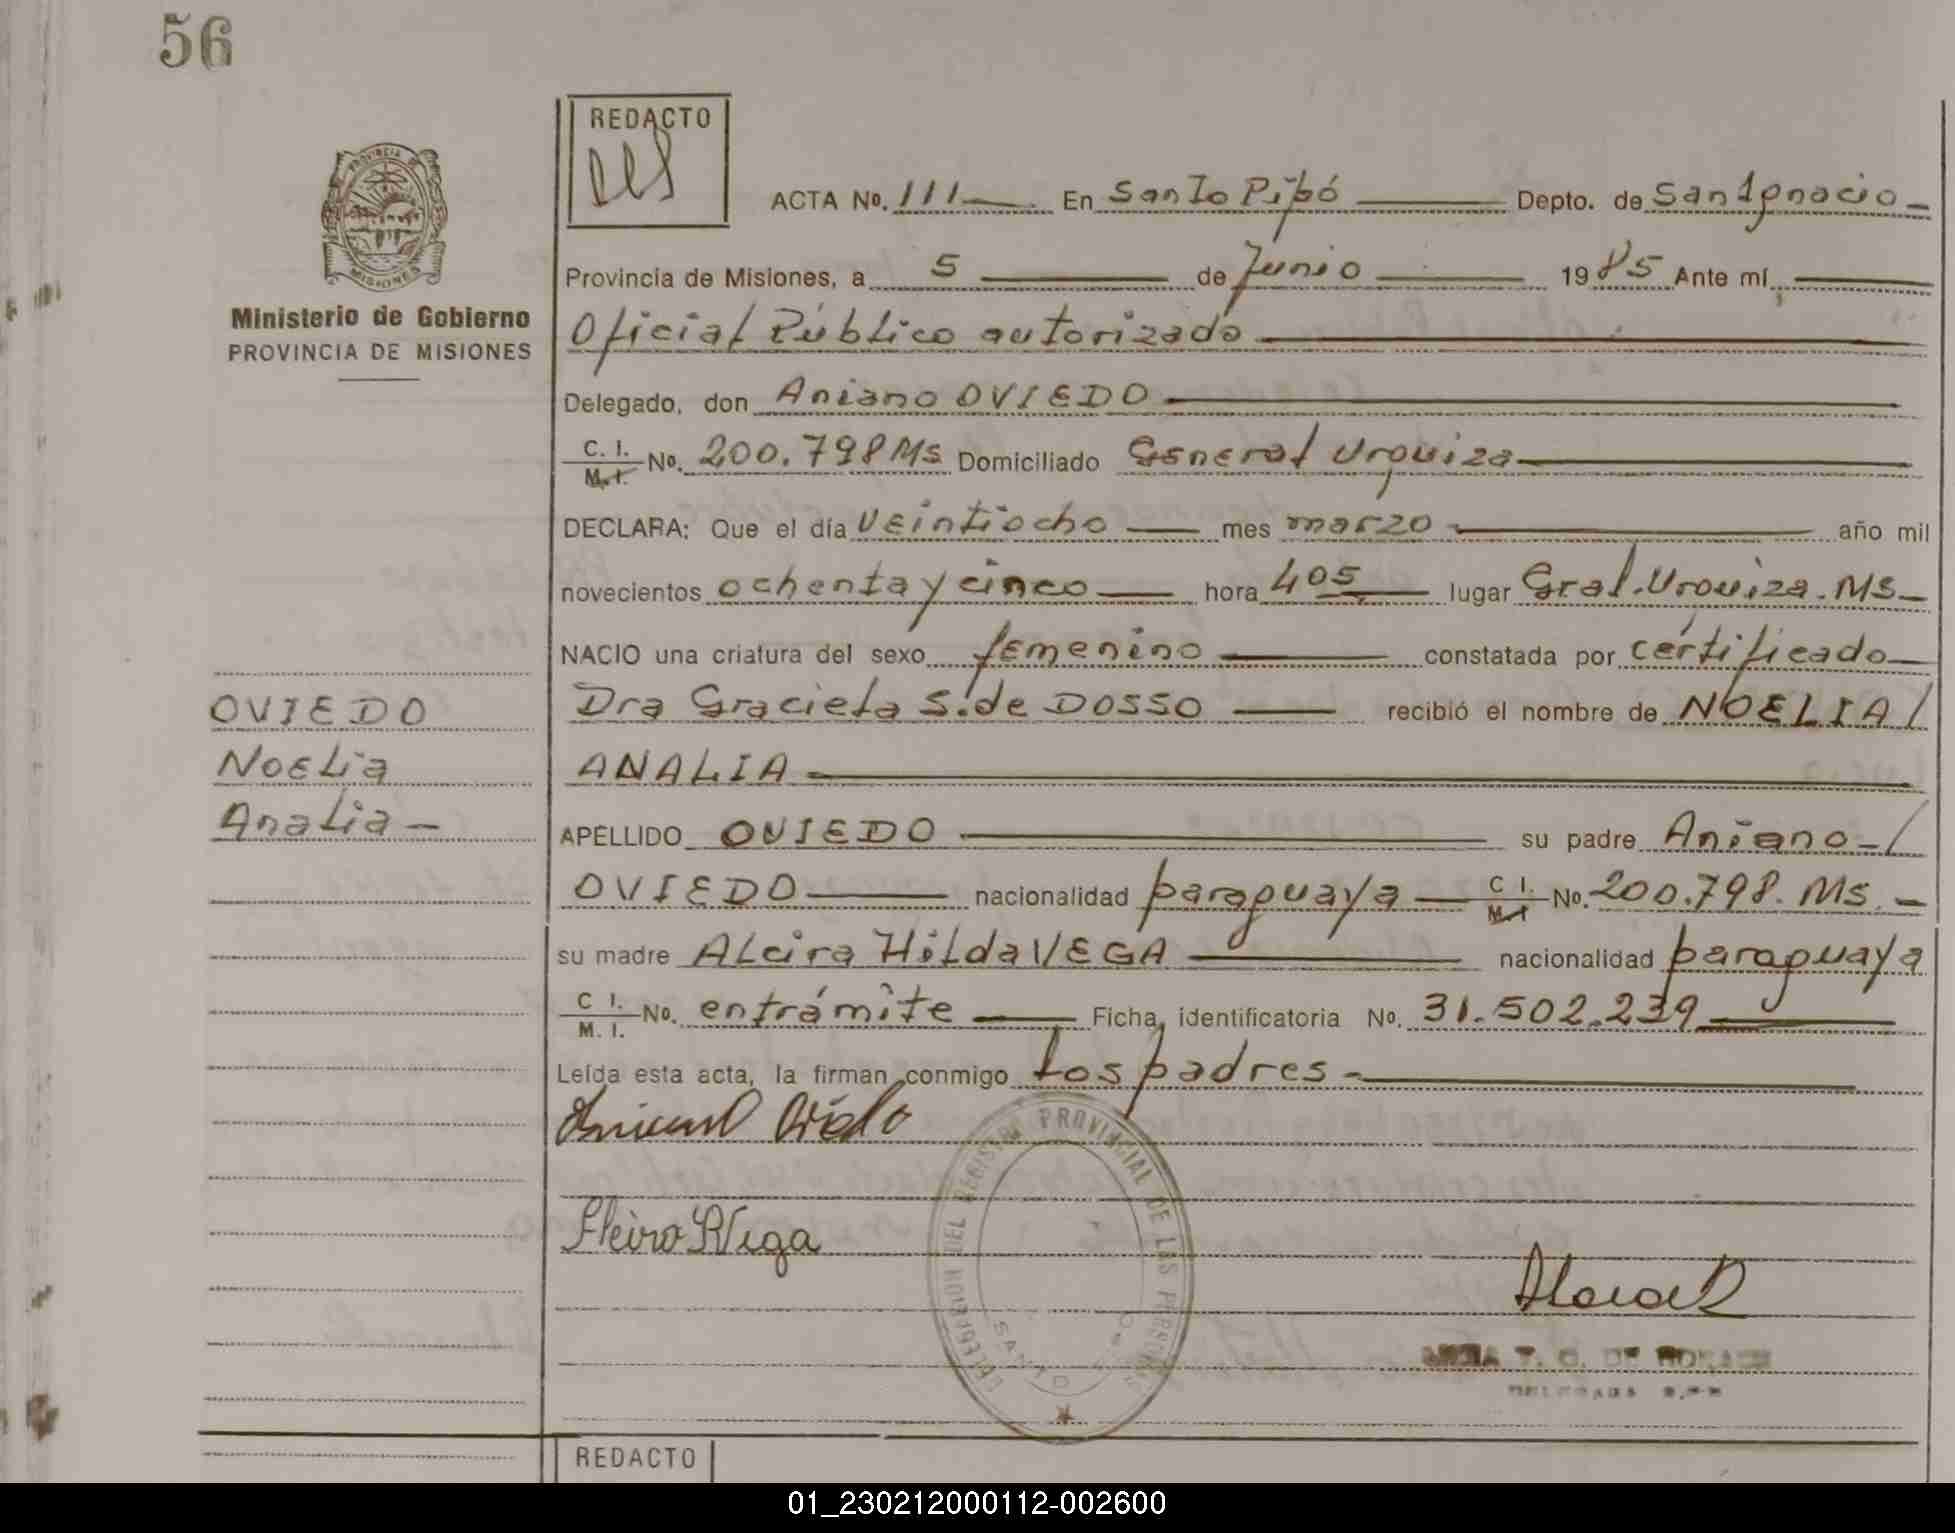 56
REDACTO
PROVINCIA DE
MISIONES
Ministerio de Gobierno
PROVINCIA DE MISIONES
ACTA No. 111 En Santo Pipó Depto. de San Ignacio
Provincia de Misiones, a 5 de Junio 1985 Ante mí,
Oficial Público autorizado
Delegado, don Aniano OVIEDO
C. I. / M. I. No. 200.798 Ms Domiciliado General Urquiza
DECLARA: Que el día veintiocho mes marzo año mil
novecientos ochenta y cinco hora 405 lugar Gral. Urquiza. Ms
NACIO una criatura del sexo femenino constatada por certificado
Dra Graciela S. de DOSSO recibió el nombre de NOELIA /
ANALIA
APELLIDO OVIEDO su padre Aniano - /
OVIEDO nacionalidad paraguaya C I. / M. I No. 200.798. Ms. -
su madre Alcira Hilda VEGA nacionalidad paraguaya
C I. / M. I. No. en trámite Ficha identificatoria No. 31.502.239
Leída esta acta, la firman conmigo los padres -
OVIEDO
Noelia
Analia -
DELEGACION DEL REGISTRO PROVINCIAL DE LAS PERSONAS
SANTO
REDACTO
01_230212000112-002600